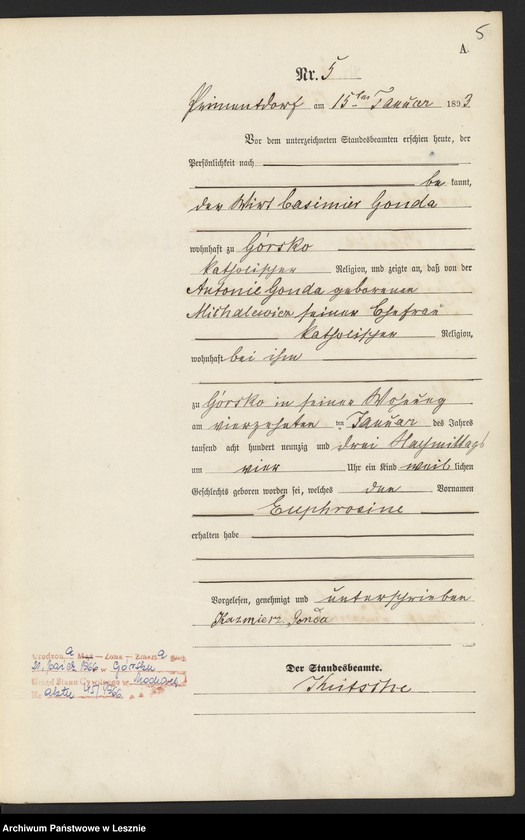 5
A.
Nr. 5
Primentdorf am 15ten Januar 1893.
Vor dem unterzeichneten Standesbeamten erschien heute, der
Persönlichkeit nach
be kannt,
der Wirt Casimier Gonda
wohnhaft zu Górsko
katholischer Religion, und zeigte an, daß von der
Antonie Gonda geborenen
Michalewicz seiner Ehefrau
katholischer Religion,
wohnhaft bei ihm
zu Górsko in seiner Wohnung
am vierzehnten ten Januar des Jahres
tausend acht hundert neunzig und drei Nachmittags
um vier Uhr ein Kind weib lichen
Geschlechts geboren worden sei, welches den Vornamen
Euphrosine
erhalten habe
Vorgelesen, genehmigt und unterschrieben
Kazmierz Gonda
Der Standesbeamte.
Kutsche
Urodzon a Mąż – Żona – Zmarł a
paźdz 1966 w Górsku
Urząd Stanu Cywilnego w
Nr aktu 45/1966
Archiwum Państwowe w Lesznie